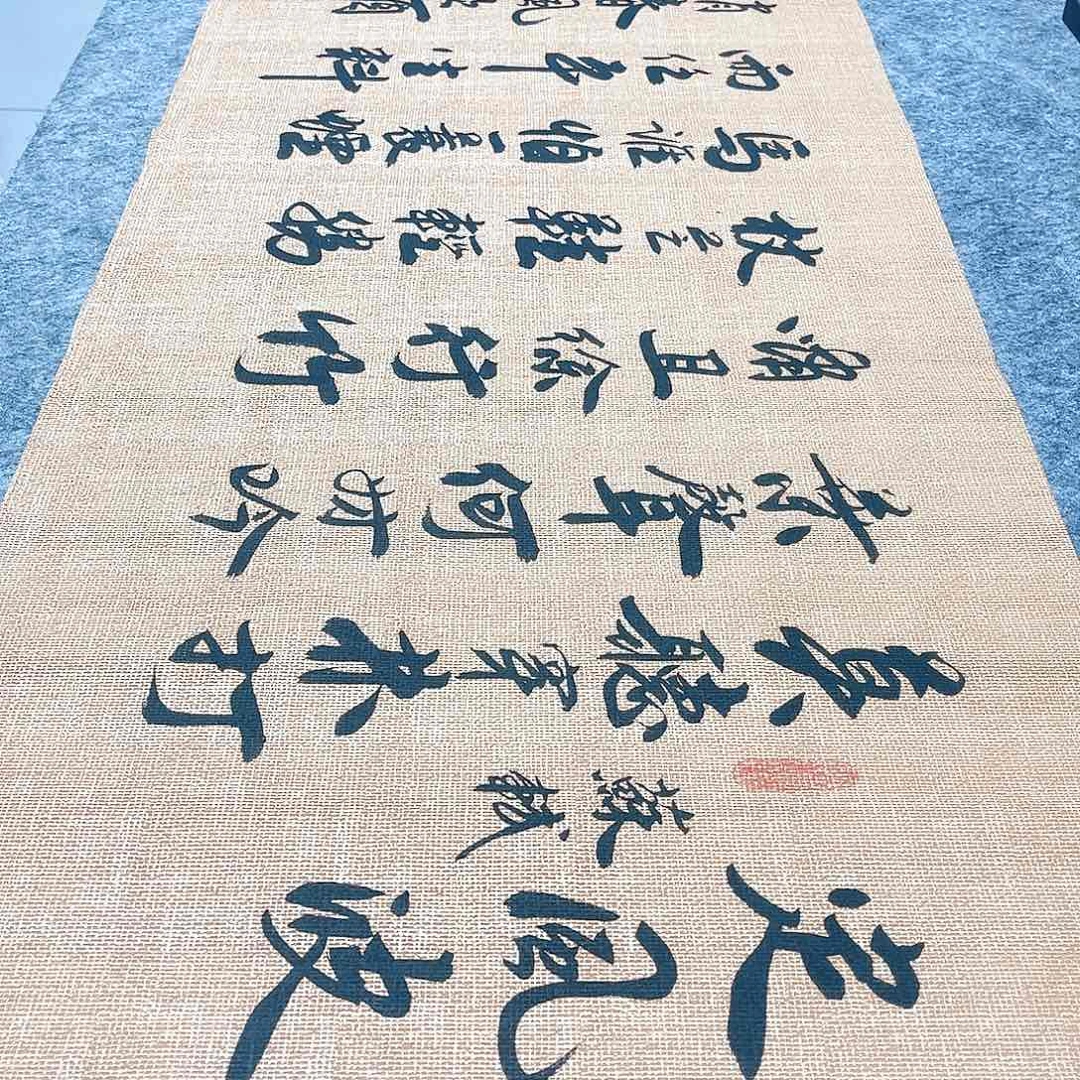 定風波
蘇軾
莫聽穿林打
葉聲何妨吟
嘯且徐行竹
杖芒鞋輕勝
馬誰怕一蓑煙
雨任平生料
春風吹酒